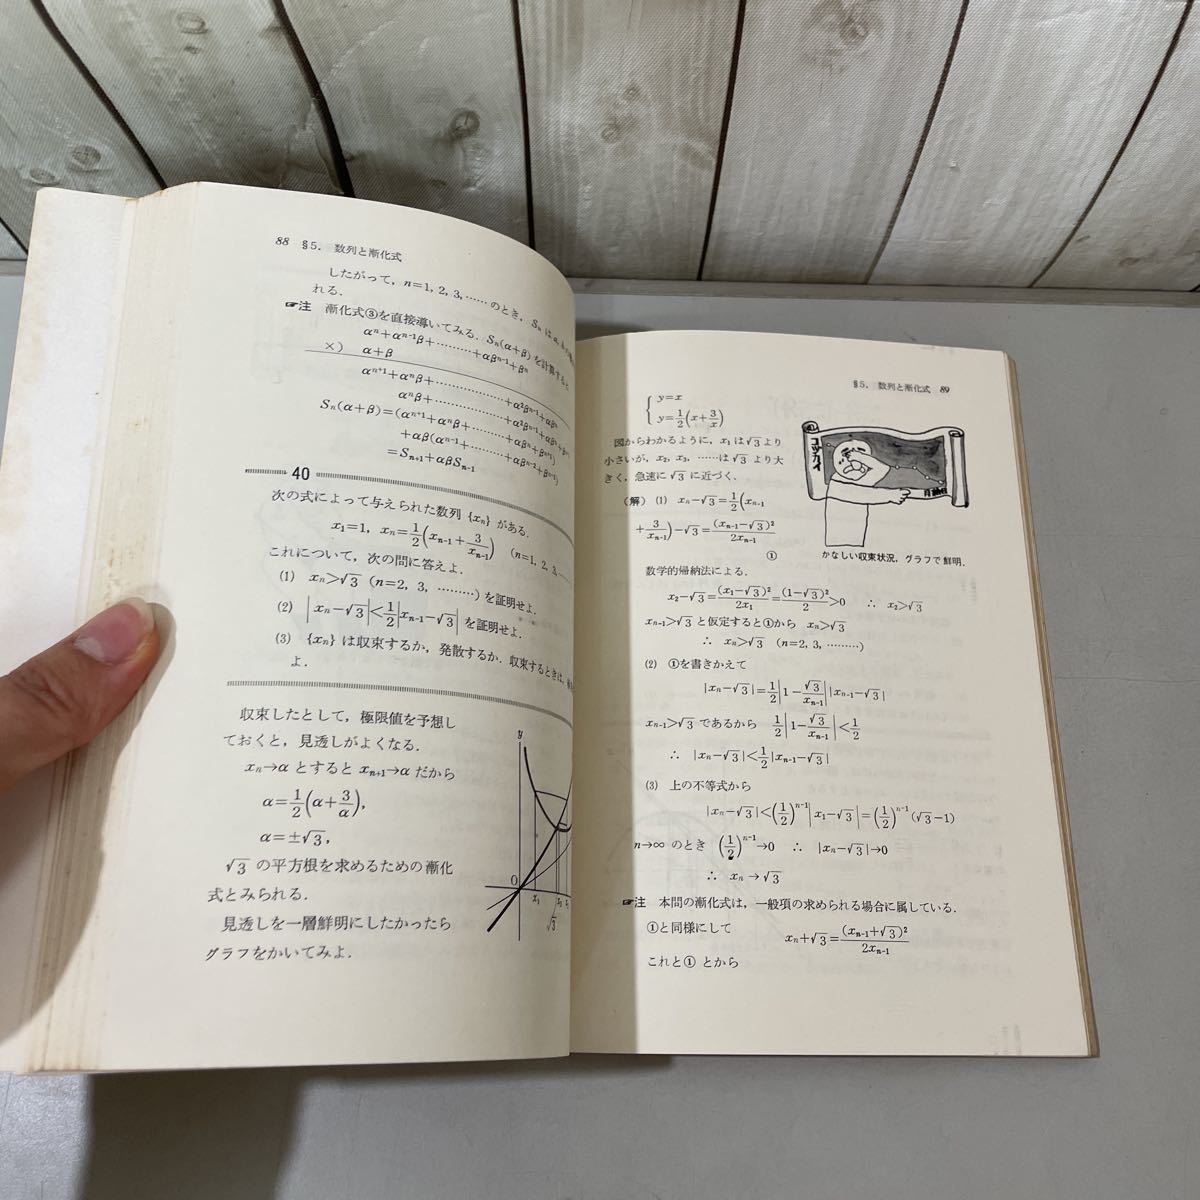 88 §5. 数列と漸化式
したがって, n=1, 2, 3, …… のとき, Sₙ は
れる.
☞注 漸化式③を直接導いてみる. Sₙ(α+β)を計算すると
αⁿ+αⁿ⁻¹β+………+αβⁿ⁻¹+βⁿ
×) α+β
αⁿ⁺¹+αⁿβ+………………+α²βⁿ⁻¹+αβⁿ
αⁿβ+………………+α²βⁿ⁻¹+αβⁿ+βⁿ⁺¹
Sₙ(α+β)=(αⁿ⁺¹+αⁿβ+………+αβⁿ+βⁿ⁺¹)
+αβ(αⁿ⁻¹+………+αβⁿ⁻²+βⁿ⁻¹)
=Sₙ₊₁+αβSₙ₋₁
40
次の式によって与えられた数列 {xₙ} がある.
x₁=1, xₙ=1/2(xₙ₋₁+3/xₙ₋₁) (n=1, 2, 3,
これについて, 次の問に答えよ.
(1) xₙ>√3 (n=2, 3, ………) を証明せよ.
(2) |xₙ−√3|<1/2|xₙ₋₁−√3| を証明せよ.
(3) {xₙ} は収束するか, 発散するか. 収束するときは,
よ.
収束したとして, 極限値を予想し
ておくと, 見透しがよくなる.
xₙ→α とすると xₙ₊₁→α だから
α=1/2(α+3/α),
α=±√3,
√3 の平方根を求めるための漸化
式とみられる.
見透しを一層鮮明にしたかったら
グラフをかいてみよ.
y
O
x₁
√3
§5. 数列と漸化式 89
{ y=x
y=1/2(x+3/x)
図からわかるように, x₁ は √3 より
小さいが, x₂, x₃, …… は √3 より大
きく, 急速に √3 に近づく.
コヅカイ
月給日
かなしい収束状況, グラフで鮮明.
(解) (1) xₙ−√3=1/2(xₙ₋₁
+3/xₙ₋₁)−√3=(xₙ₋₁−√3)²/2xₙ₋₁
①
数学的帰納法による.
x₂−√3=(x₁−√3)²/2x₁=(1−√3)²/2>0 ∴ x₂>√3
xₙ₋₁>√3 と仮定すると①から xₙ>√3
∴ xₙ>√3 (n=2, 3, ………)
(2) ①を書きかえて
|xₙ−√3|=1/2|1−√3/xₙ₋₁||xₙ₋₁−√3|
xₙ₋₁>√3 であるから 1/2|1−√3/xₙ₋₁|<1/2
∴ |xₙ−√3|<1/2|xₙ₋₁−√3|
(3) 上の不等式から
|xₙ−√3|<(1/2)ⁿ⁻¹|x₁−√3|=(1/2)ⁿ⁻¹(√3−1)
n→∞ のとき (1/2)ⁿ⁻¹→0 ∴ |xₙ−√3|→0
∴ xₙ→√3
☞注 本問の漸化式は, 一般項の求められる場合に属している.
①と同様にして xₙ+√3=(xₙ₋₁+√3)²/2xₙ₋₁
これと① とから